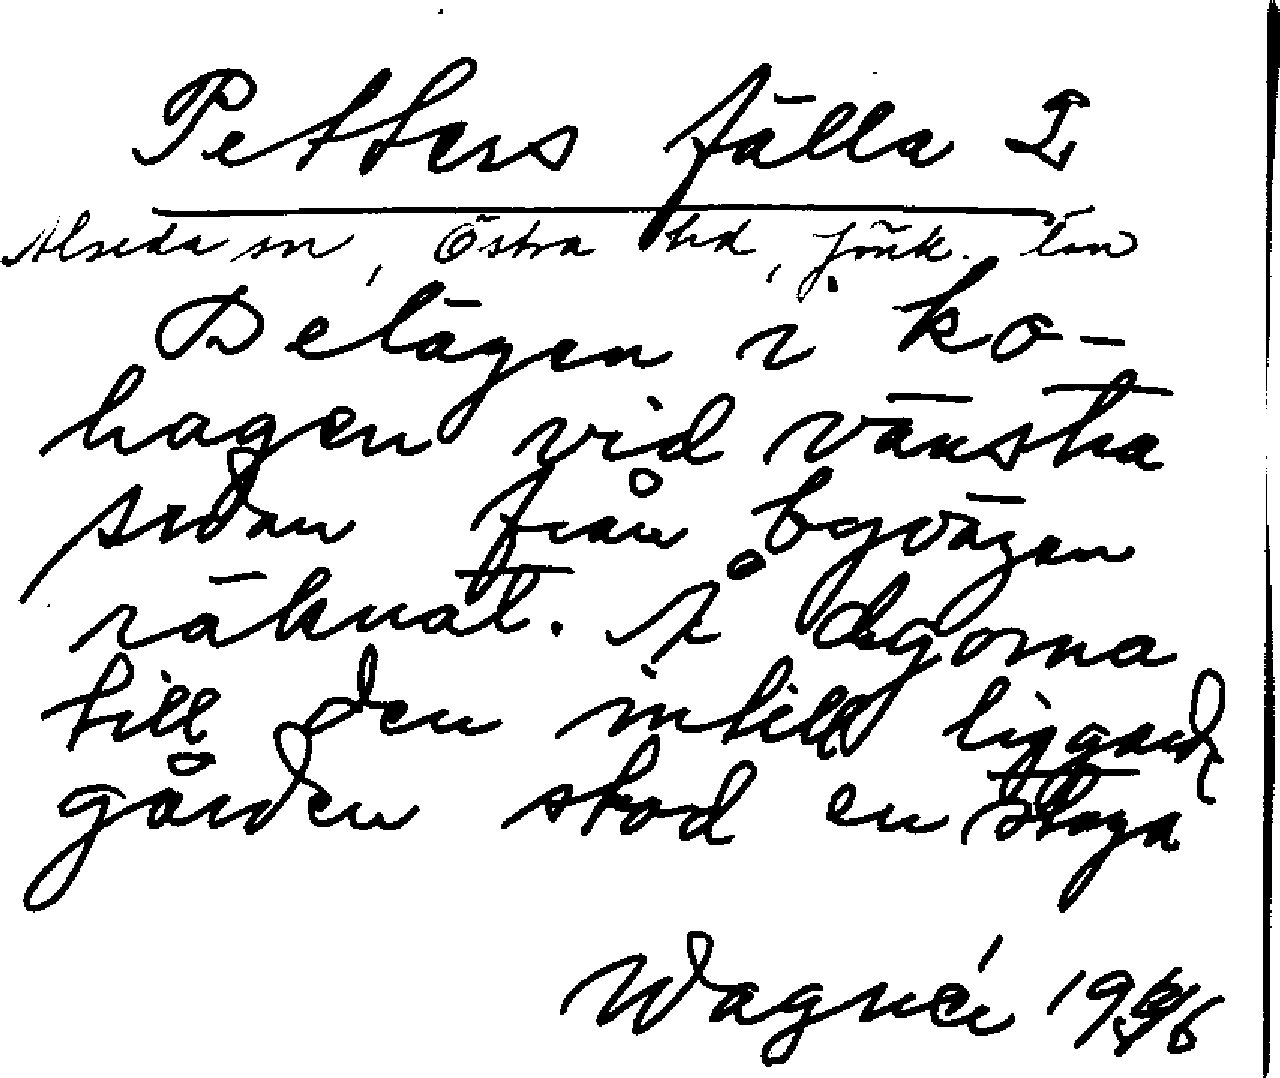 Petters fälla I
Alseda sn, Östra hd, Jönk. län
Belägen i ko-
hagen vid vänstra
sidan från byvägen
räknat. På ägorna
till den intill liggande
gården stod en stuga
Wagnér 1946